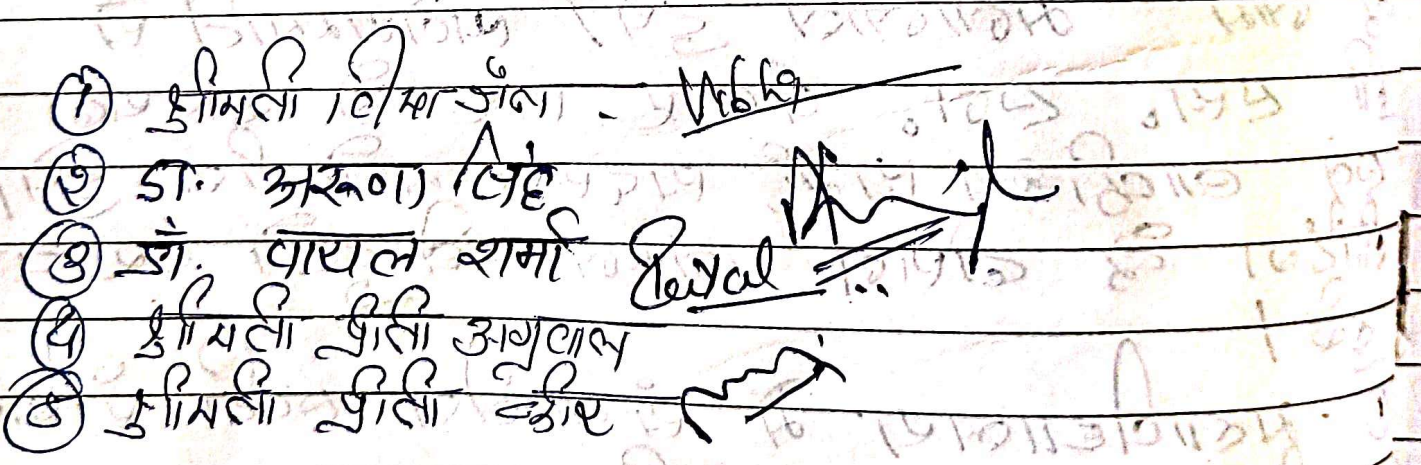 ① श्रीमती विभा जैन - Vibha
② डा. अरूणा सिंह
③ डॉ. पायल शर्मा Payal
④ श्रीमती प्रीती अग्रवाल
⑤ श्रीमती प्रीती कौर